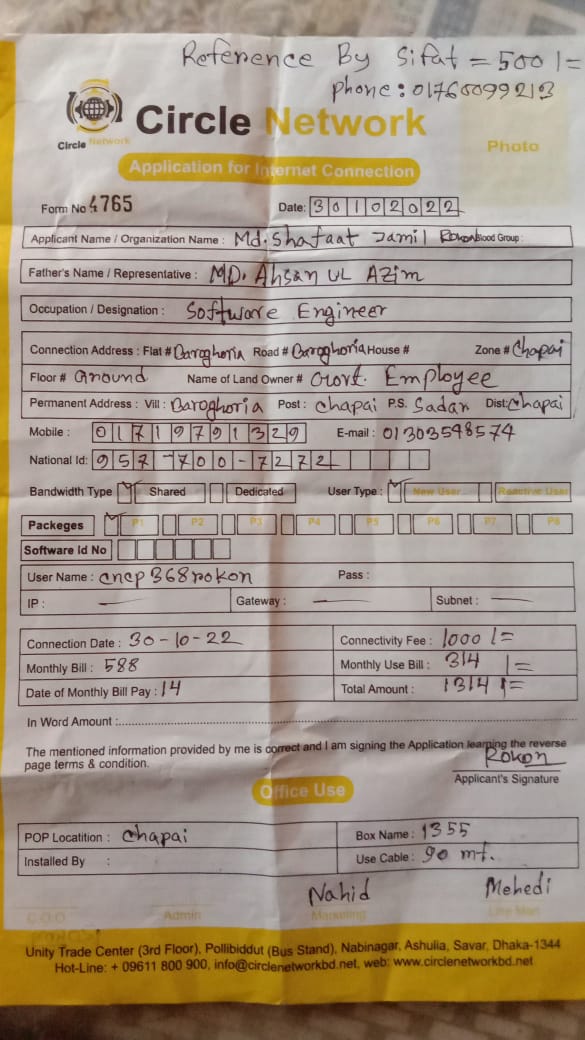 Reference By Sifat = 500/=
Phone: 01760099213
Circle Network
Circle Network
Photo
Application for Internet Connection
Form No 4765 Date: 30102022
Applicant Name / Organization Name : Md. Shafaat Jamil Rokon Blood Group:
Father's Name / Representative : MD. Ahsan UL Azim
Occupation / Designation : Software Engineer
Connection Address : Flat # Baroghoria Road # Baroghoria House # Zone # Chapai
Floor # Ground Name of Land Owner # Govt. Employee
Permanent Address : Vill : Baroghoria Post : Chapai P.S. Sadar Dist: Chapai
Mobile : 01719791329 E-mail : 01303548574
National Id: 957-700-7272
Bandwidth Type Shared Dedicated User Type : New User Reactive User
Packeges P1 P2 P3 P4 P5 P6 P7 P8
Software Id No
User Name : cncp368rokon Pass :
IP : — Gateway : — Subnet : —
Connection Date : 30-10-22 Connectivity Fee : 1000/=
Monthly Bill : 588 Monthly Use Bill : 314/=
Date of Monthly Bill Pay : 14 Total Amount : 1314/=
In Word Amount :
The mentioned information provided by me is correct and I am signing the Application learning the reverse
page terms & condition.
Rokon
Applicant's Signature
Office Use
POP Locatition : Chapai Box Name : 1355
Installed By : Use Cable : 90 mt.
Nahid Mehedi
C.O.O Admin Marketing Line Man
Unity Trade Center (3rd Floor), Pollibiddut (Bus Stand), Nabinagar, Ashulia, Savar, Dhaka-1344
Hot-Line: + 09611 800 900, info@circlenetworkbd.net, web: www.circlenetworkbd.net